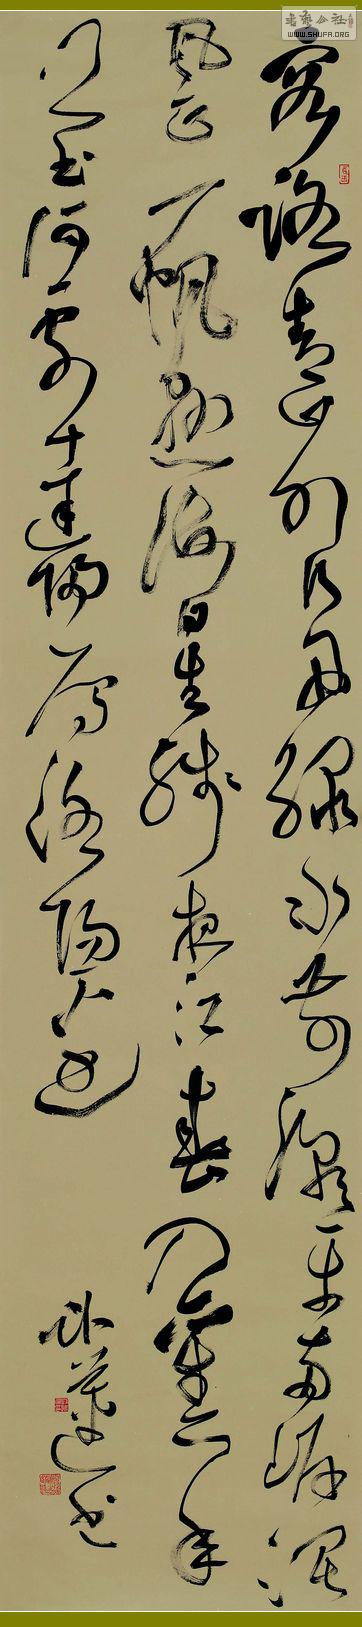 書法公社
WWW.SHUFA.ORG
客路青山外行舟绿水前潮平两岸濶
风正一帆悬海日生残夜江春入旧年
乡书何处达归雁洛阳边